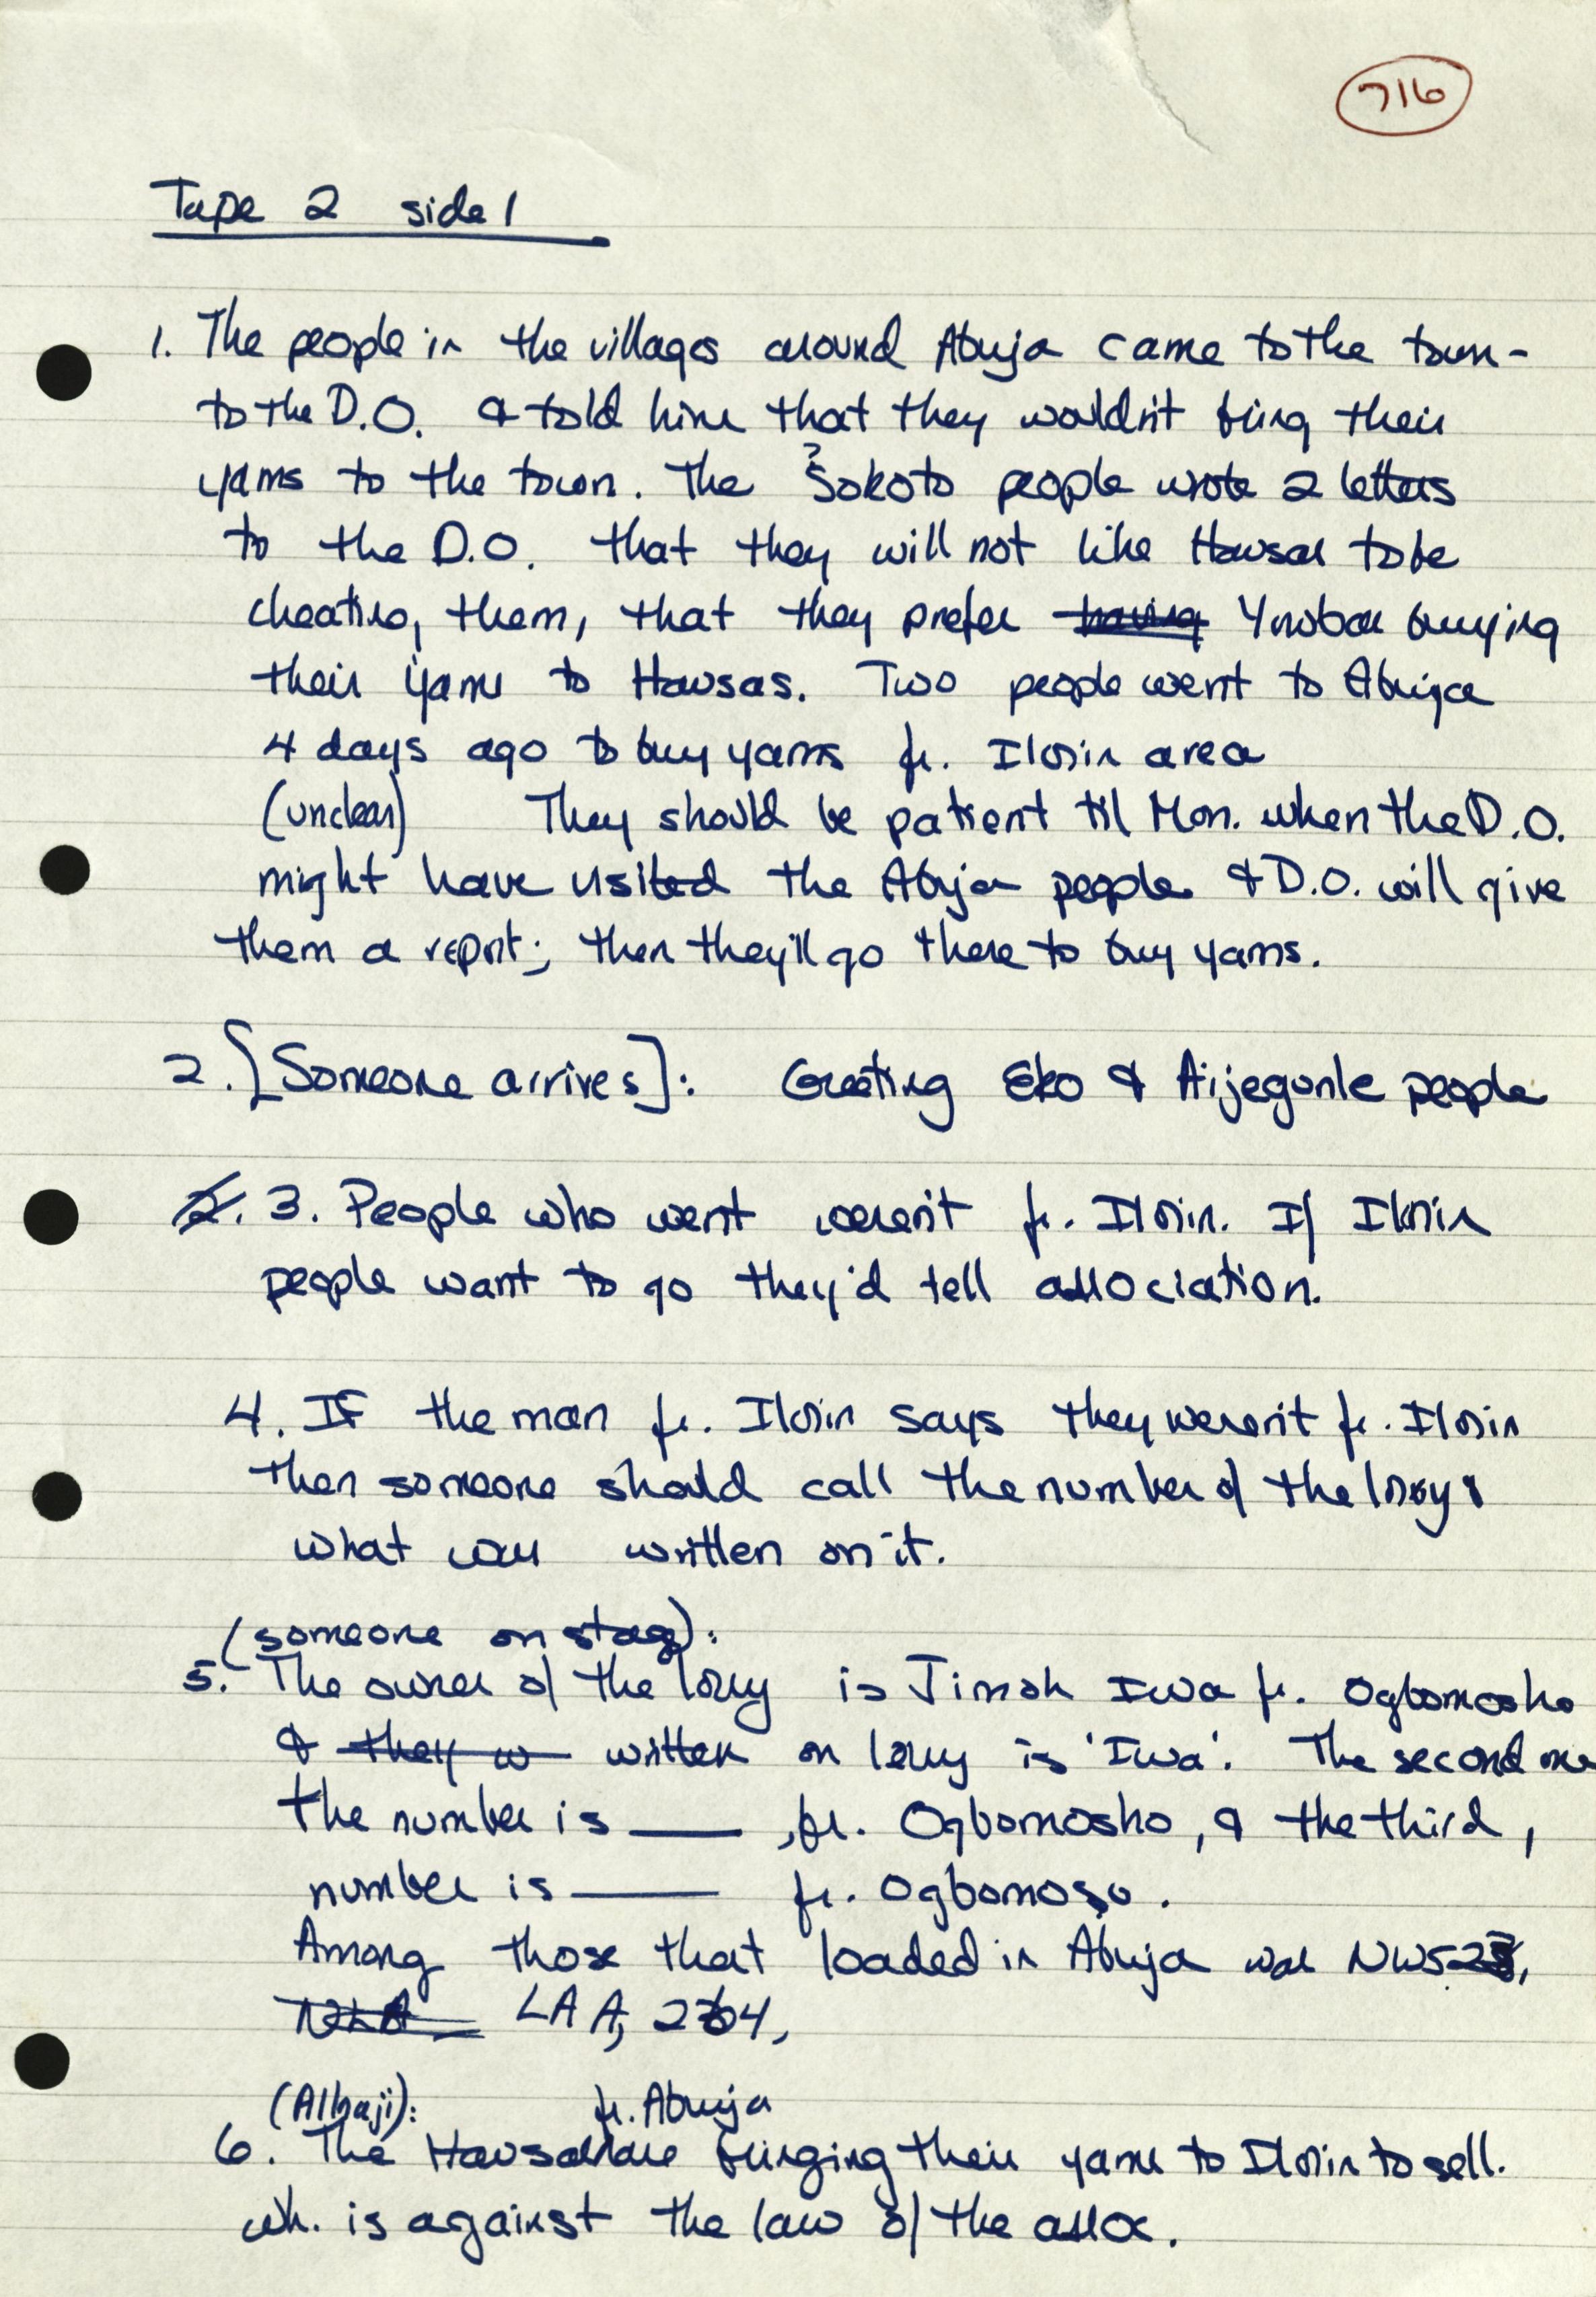 716
Tape 2 side 1
1. The people in the villages around Abuja came to the town-
to the D.O. & told him that they wouldn't bring their
yams to the town. The ?Sokoto people wrote 2 letters
to the D.O. that they will not like Hausas to be
cheating them, that they prefer having Yorubas buying
their yams to Hausas. Two people went to Abuja
4 days ago to buy yams fr. Ilorin area
(unclear) They should be patient til Mon. when the D.O.
might have visited the Abuja people & D.O. will give
them a report; then they'll go there to buy yams.
2. [Someone arrives]: Greeting Eko & Aijegunle people
2. 3. People who went weren't fr. Ilorin. If Ilorin
people want to go they'd tell association.
4. IF the man fr. Ilorin says they weren't fr. Ilorin
then someone should call the number of the lorry &
what was written on it.
(someone on stage):
5. The owner of the lorry is Jimoh Iwa fr. Ogbomosho
& they w written on lorry is 'Iwa'. The second one
the number is ___ , fr. Ogbomosho, & the third,
number is ___ fr. Ogbomoṣo.
Among those that loaded in Abuja was NW523,
LAA, 2364,
(Alhaji): fr. Abuja
6. The Hausas are bringing their yams to Ilorin to sell.
wh. is against the law of the assoc.